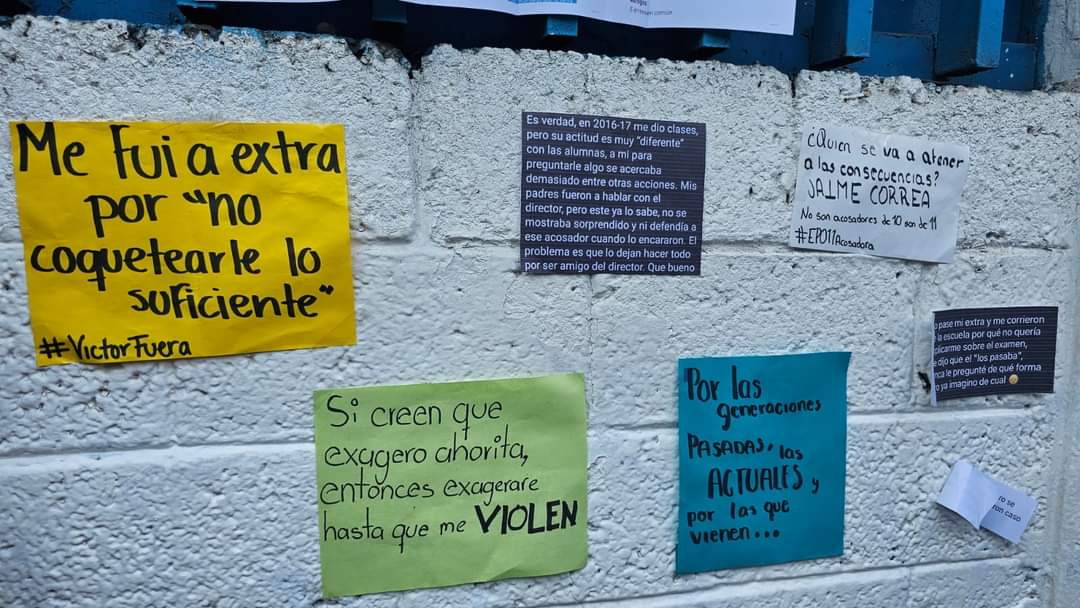 Me Fui a extra
por "no
coquetearle lo
suficiente"
#VictorFuera
Es verdad, en 2016-17 me dio clases,
pero su actitud es muy "diferente"
con las alumnas, a mí para
preguntarle algo se acercaba
demasiado entre otras acciones. Mis
padres fueron a hablar con el
director, pero este ya lo sabe, no se
mostraba sorprendido y ni defendía a
ese acosador cuando lo encararon. El
problema es que lo dejan hacer todo
por ser amigo del director. Que bueno
¿Quien se va a atener
a las consecuencias?
JAIME CORREA
No son acosadores de 10 son de 11
#EPO11Acosadora
pase mi extra y me corrieron
la escuela por qué no quería
sobre el examen,
dijo que el "los pasaba",
le pregunté de qué forma
ya imagino de cual
Si creen que
exagero ahorita,
entonces exagerare
hasta que me VIOLEN
Por las
generaciones
PASADAS, las
ACTUALES y
por las que
vienen...
ro se
ron caso